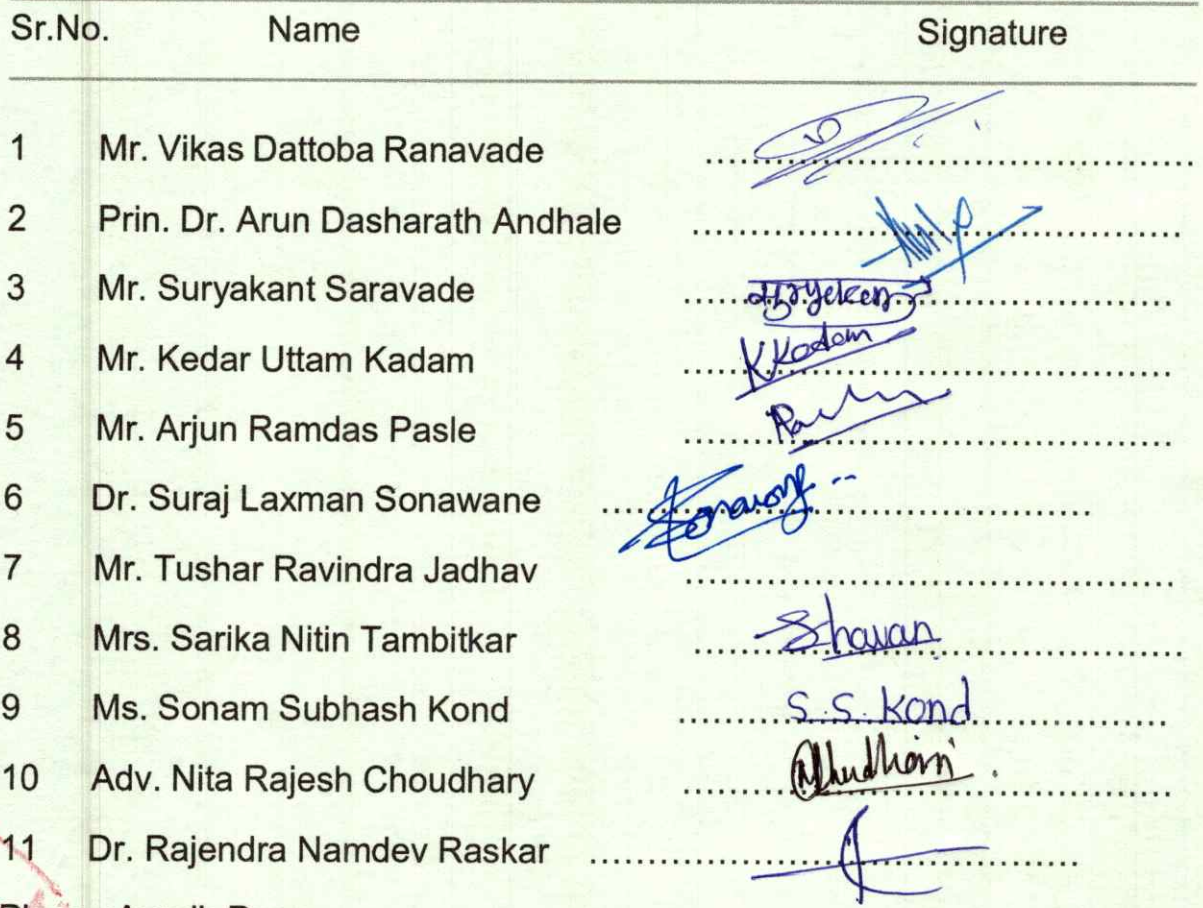 Sr.No. Name Signature
1 Mr. Vikas Dattoba Ranavade
2 Prin. Dr. Arun Dasharath Andhale
3 Mr. Suryakant Saravade
4 Mr. Kedar Uttam Kadam KKadam
5 Mr. Arjun Ramdas Pasle
6 Dr. Suraj Laxman Sonawane
7 Mr. Tushar Ravindra Jadhav
8 Mrs. Sarika Nitin Tambitkar
9 Ms. Sonam Subhash Kond S. S. Kond
10 Adv. Nita Rajesh Choudhary
11 Dr. Rajendra Namdev Raskar